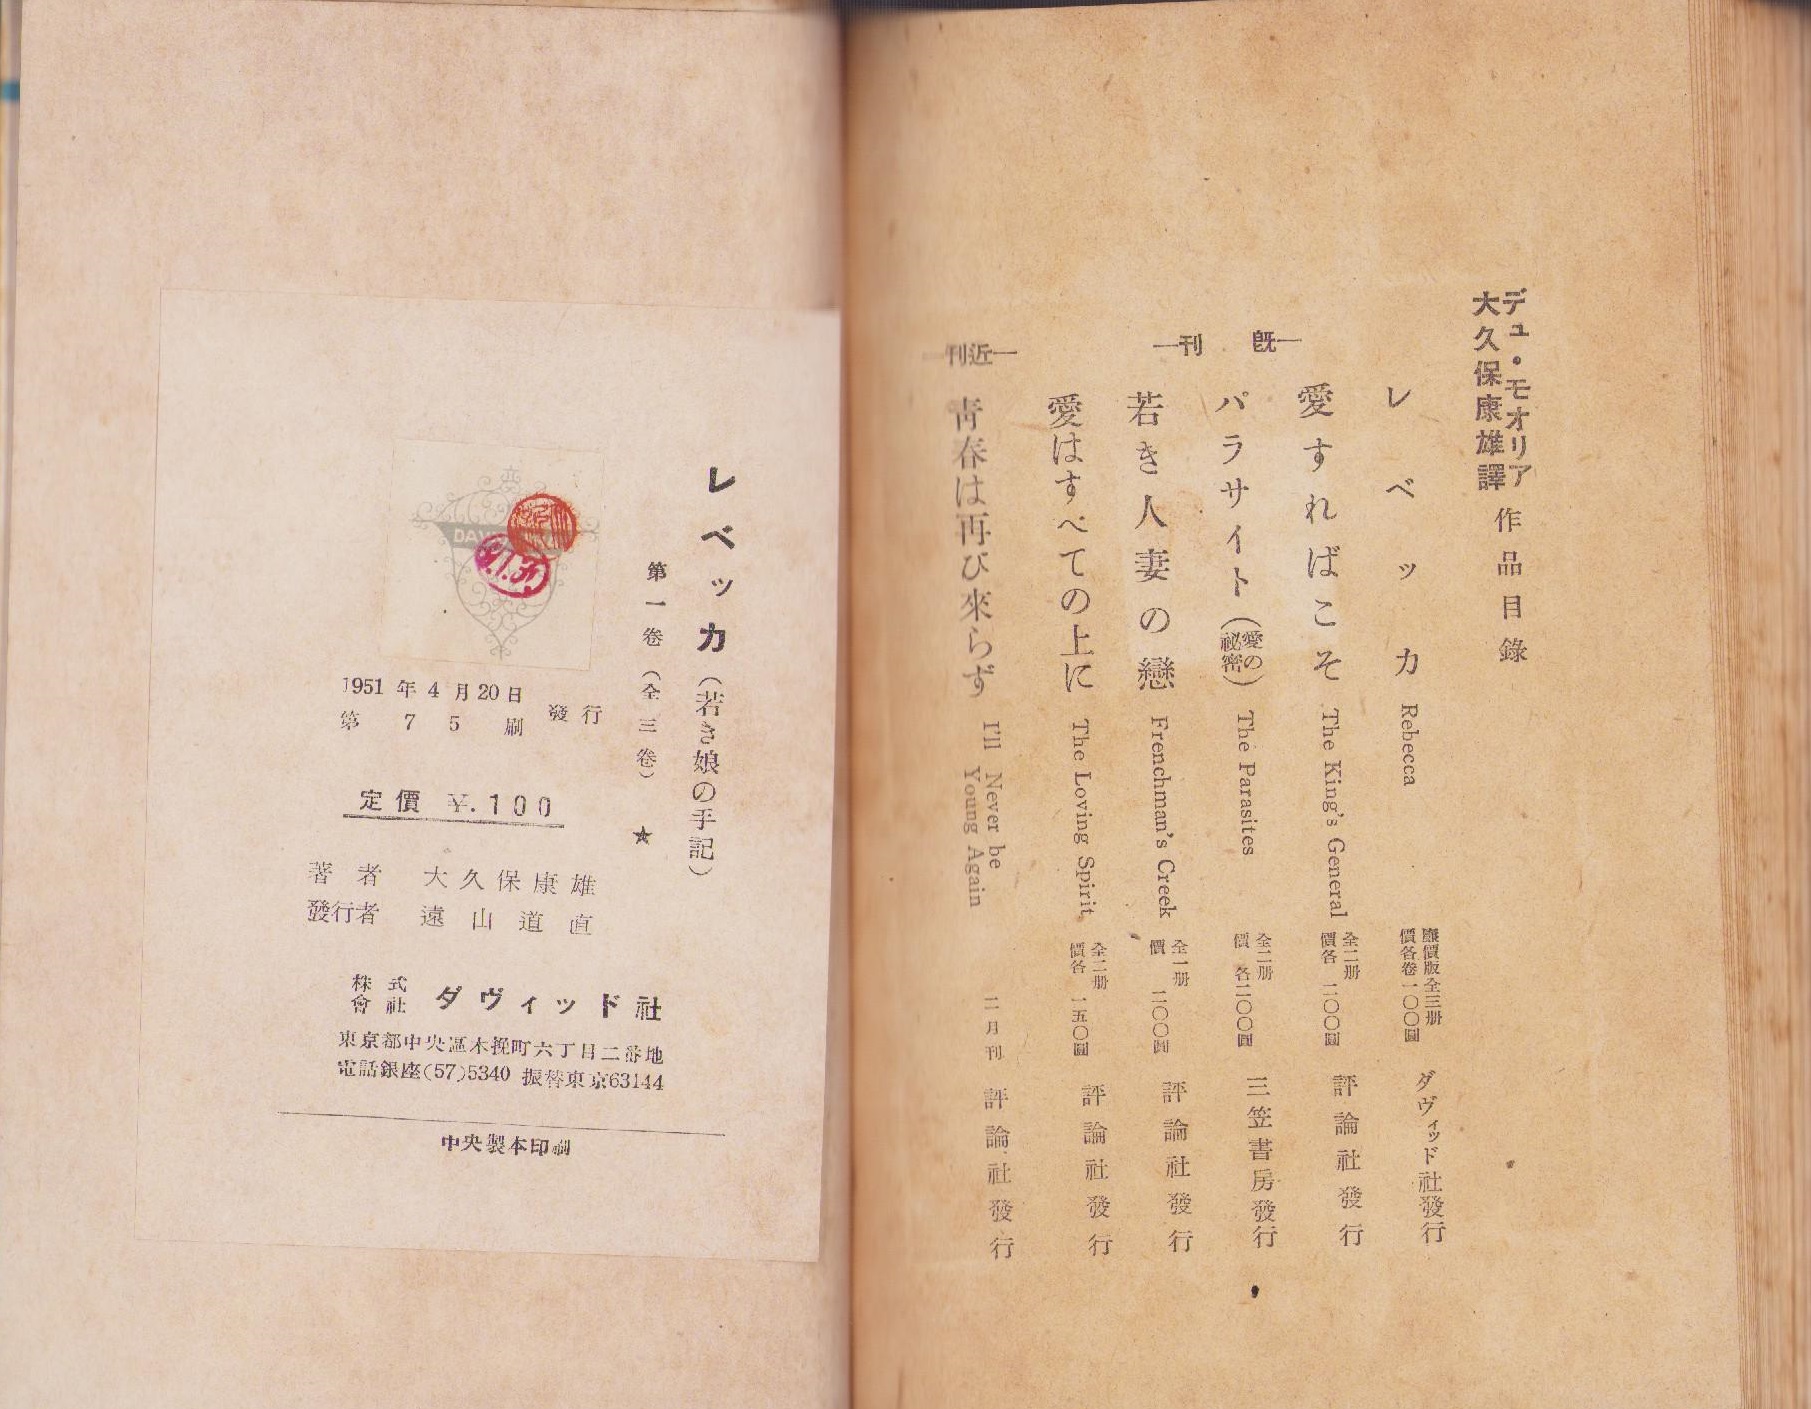 デュ・モオリア
大久保康雄譯
作品目錄
既刊
レベッカ Rebecca 廉價版全三册 價各卷一〇〇圓 ダヴィッド社發行
愛すればこそ The King's General 全二册 價各二〇〇圓 評論社發行
パラサイト(愛の祕密) The Parasites 全二册 價各二〇〇圓 三笠書房發行
若き人妻の戀 Frenchman's Creek 全一册 價二〇〇圓 評論社發行
愛はすべての上に The Loving Spirit 全二册 價各一五〇圓 評論社發行
近刊
靑春は再び來らず I'll Never be Young Again 二月刊 評論社發行
レベッカ(若き娘の手記)
第一卷(全三卷) ★
1951年4月20日
第75刷
發行
定價 ¥.100
著者 大久保康雄
發行者 遠山道直
株式會社 ダヴィッド社
東京都中央區木挽町六丁目二番地
電話銀座(57)5340 振替東京63144
中央製本印刷